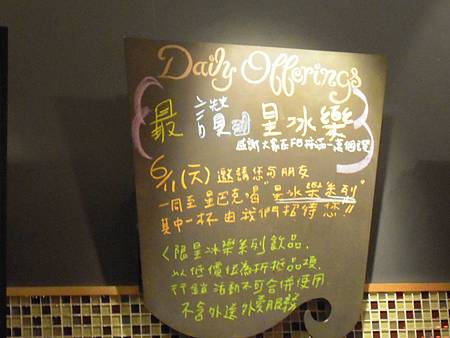 Daily Offerings
最讚 星冰樂
感謝大家在FB按滿一萬個讚
6/11(天) 邀請您與朋友
一同至星巴克喝"星冰樂系列"
其中一杯由我們招待您!!
<限星冰樂系列飲品.
以低價位為折抵品項.
行銷活動不可合併使用.
不含外送外賣服務